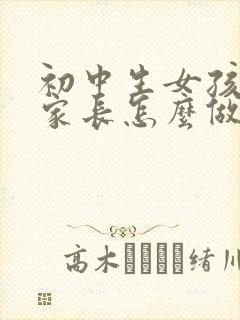 初中生女孩
家长怎麼做
高木
绪川